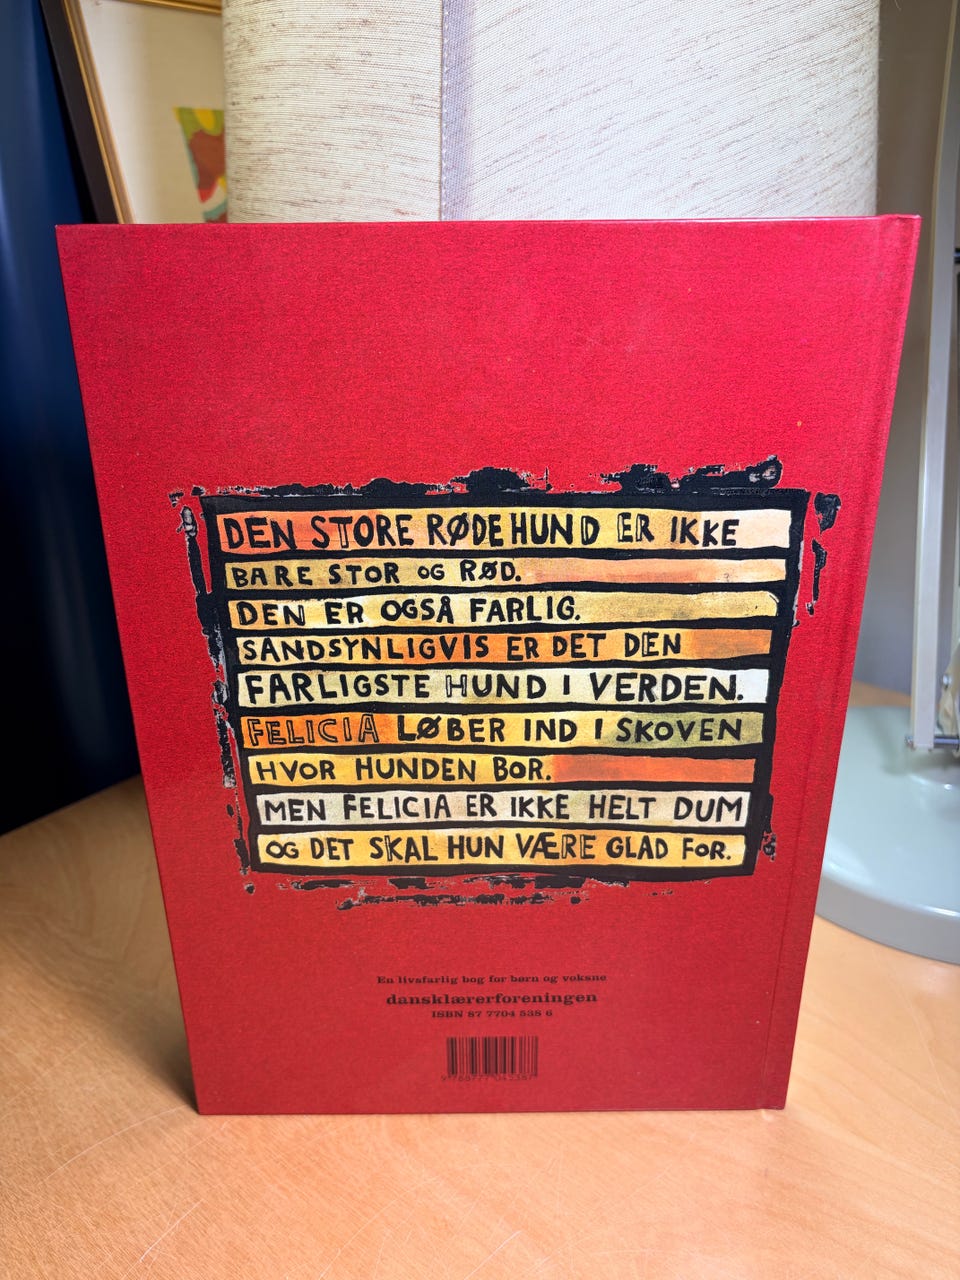 DEN STORE RØDE HUND ER IKKE
BARE STOR OG RØD.
DEN ER OGSÅ FARLIG.
SANDSYNLIGVIS ER DET DEN
FARLIGSTE HUND I VERDEN.
FELICIA LØBER IND I SKOVEN
HVOR HUNDEN BOR.
MEN FELICIA ER IKKE HELT DUM
OG DET SKAL HUN VÆRE GLAD FOR.
En livsfarlig bog for børn og voksne
dansklærerforeningen
ISBN 87 7704 538 6
9 788777 045387